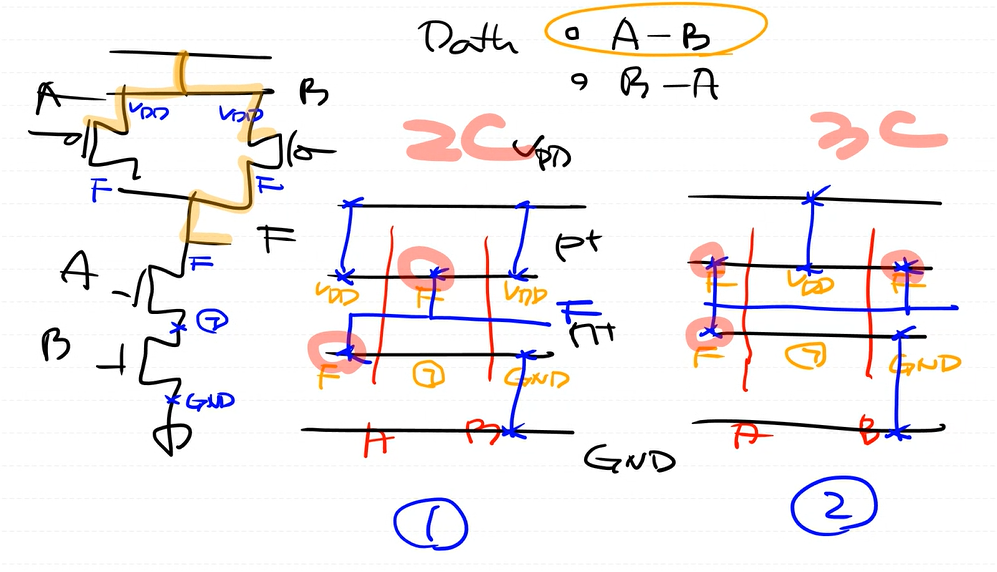 Path • A-B
• B-A
A
VDD
VDD
B
F
F
F
F
A
㉠
B
GND
2C
VDD
p+
VDD
F
VDD
F
n+
F
㉠
GND
A
B
GND
①
3C
F
VDD
F
F
㉠
GND
A
B
②